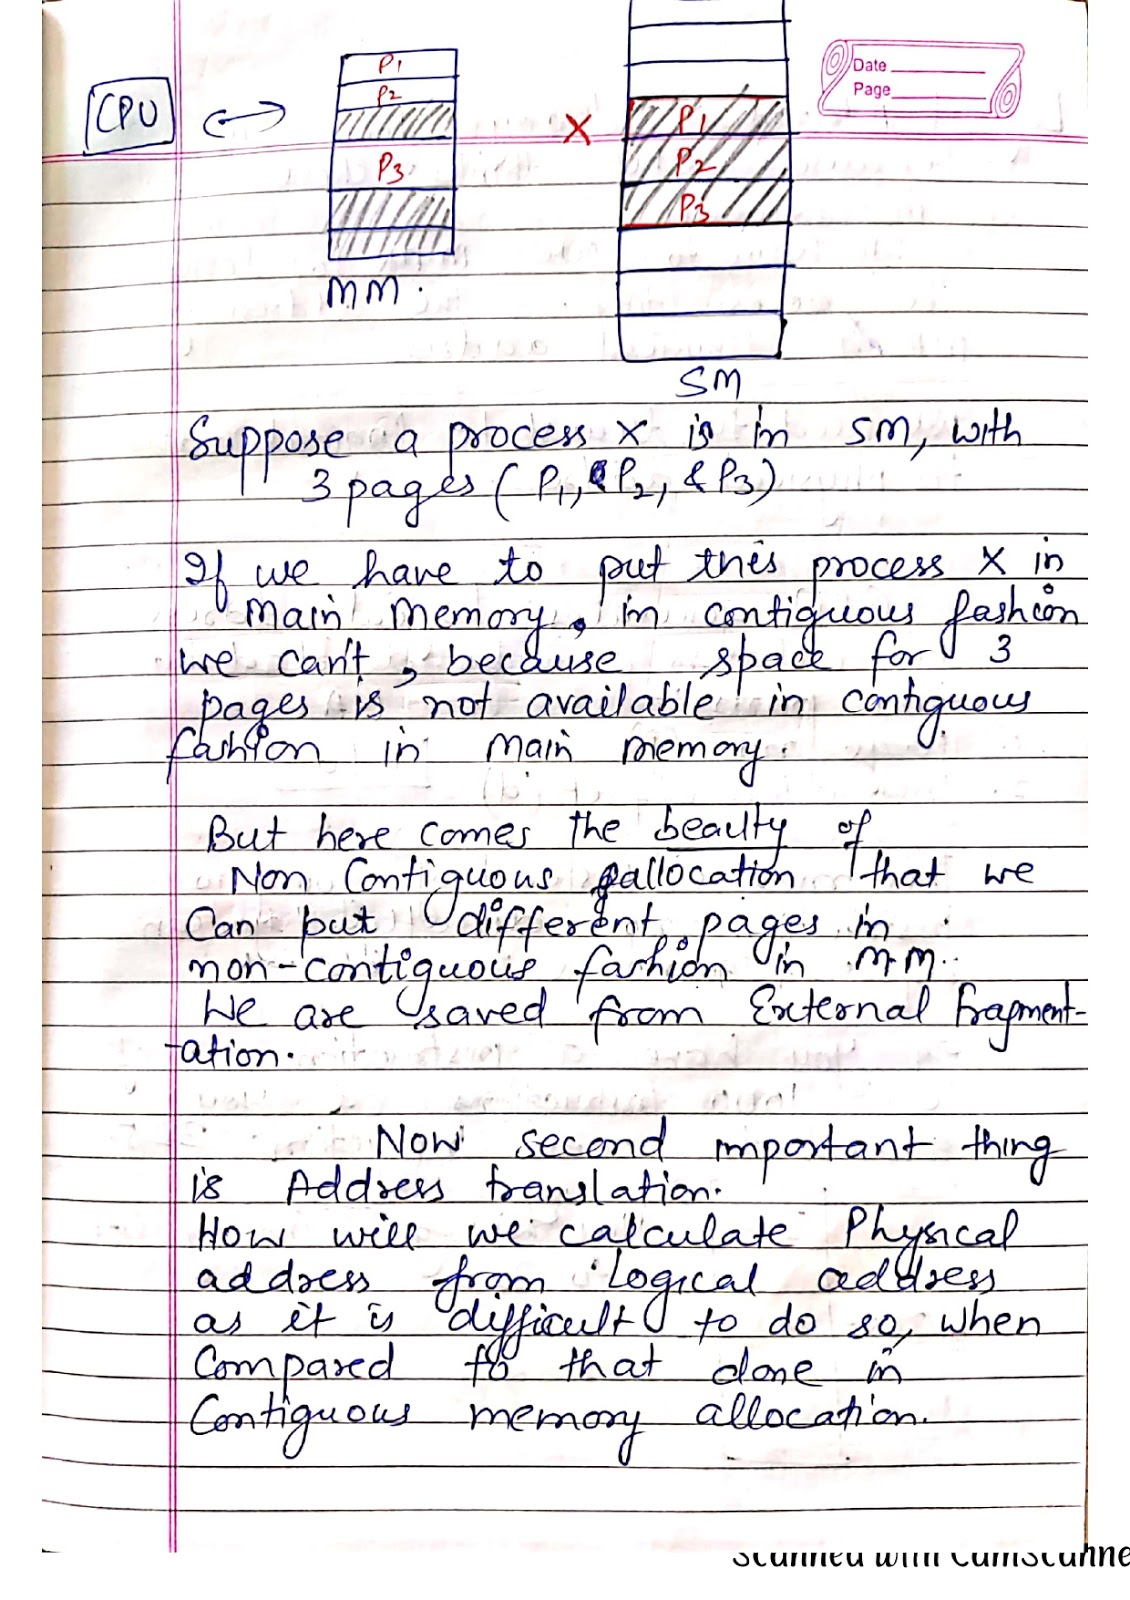 Date
Page
CPU
P1
P2
P3
MM.
X
P1
P2
P3
SM
Suppose a process X is in SM, with
3 pages (P1, P2, & P3)
If we have to put this process X in
Main Memory, in contiguous fashion
we can't, because space for 3
pages is not available in contiguous
fashion in main memory.
But here comes the beauty of
Non Contiguous allocation that we
can put different pages in
non-contiguous fashion in M.M.
We are saved from External fragment-
-ation.
Now second important thing
is Address translation.
How will we calculate Physical
address from logical address
as it is difficult to do so, when
compared to that done in
Contiguous memory allocation.
Scanned with CamScanne